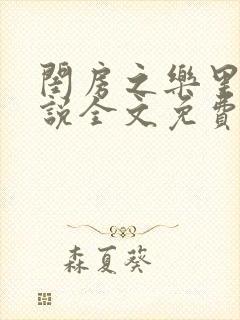 閨房之樂里
說全文免費
森夏葵